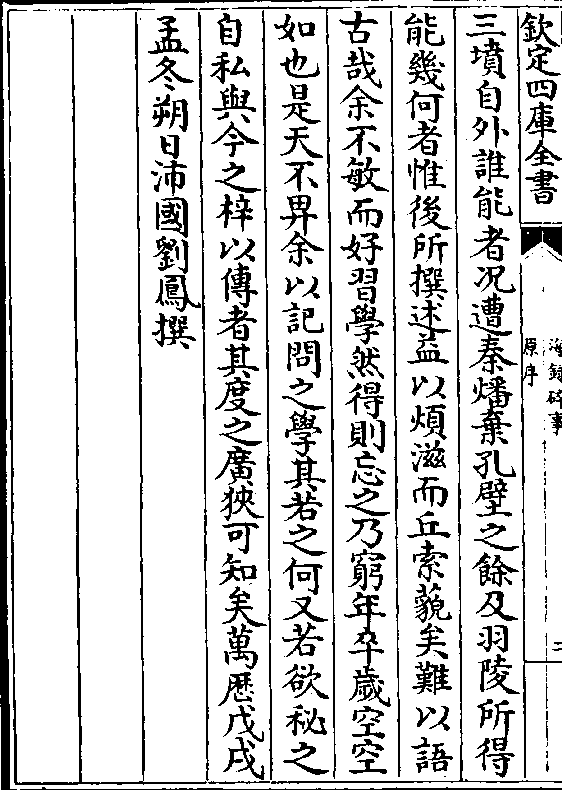 欽定四庫全書
海録碎事
原序
二
三墳自外誰能者况遭秦燔棄孔壁之餘及羽陵所得
能幾何者惟後所撰述益以煩滋而丘索藐矣難以語
古哉余不敏而好習學然得則忘之乃窮年卒歲空空
如也是天不畀余以記問之學其若之何又若欲秘之
自私與今之梓以傳者其度之廣狹可知矣萬歴戊戌
孟冬朔日沛國劉鳳撰